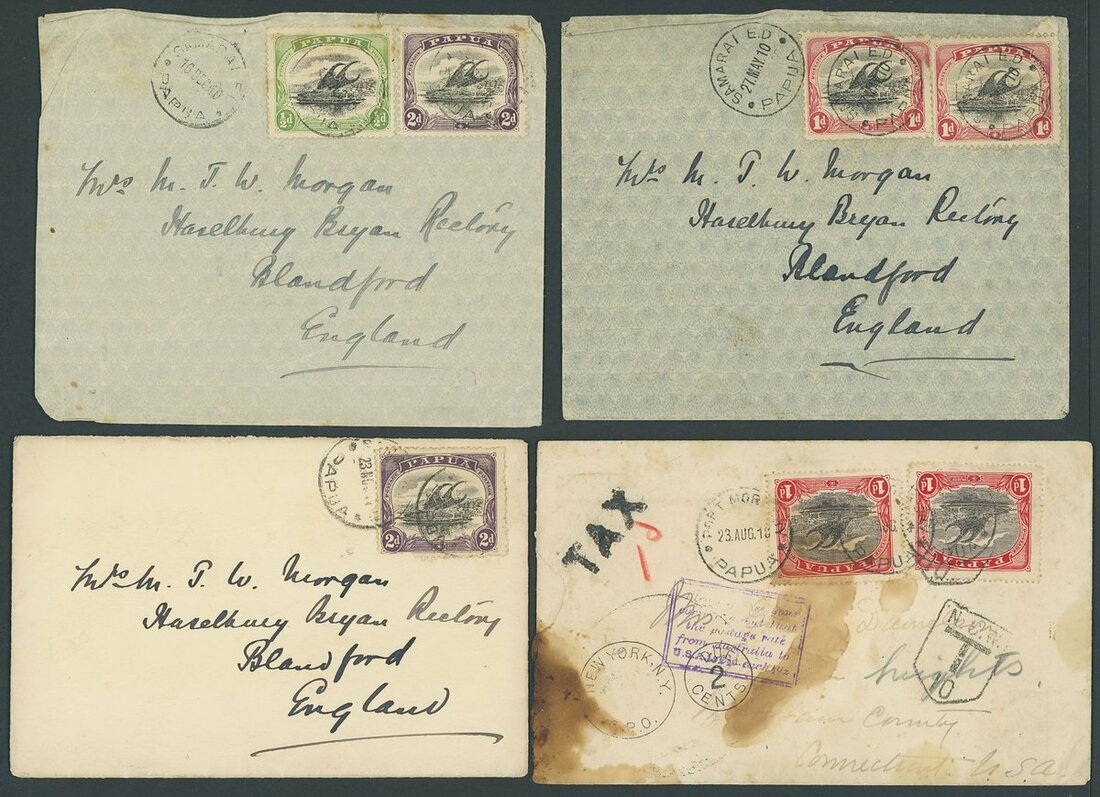 SAMARAI E.D
PAPUA
PAPUA
½d ½d
PAPUA
2d 2d
Mrs M. T. W. Morgan
Haselbury Bryan Rectory
Blandford
England
SAMARAI E.D
27. MAY. 10
PAPUA
PAPUA
1d 1d
PAPUA
1d
Mrs M. T. W. Morgan
Haselbury Bryan Rectory
Blandford
England
PAPUA
PAPUA
2d 2d
Mrs M. T. W. Morgan
Haselbury Bryan Rectory
Blandford
England
TAX
PORT MOR
23. AUG. 18
PAPUA
1d 1d
PAPUA
1d 1d
PAPUA
the postage rate
from Australia to
NEW YORK, N.Y.
DUE
2
CENTS
N.S.W.
T
10
heights
County
Connecticut. USA.